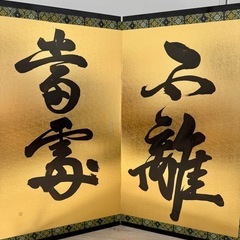 不離
當處